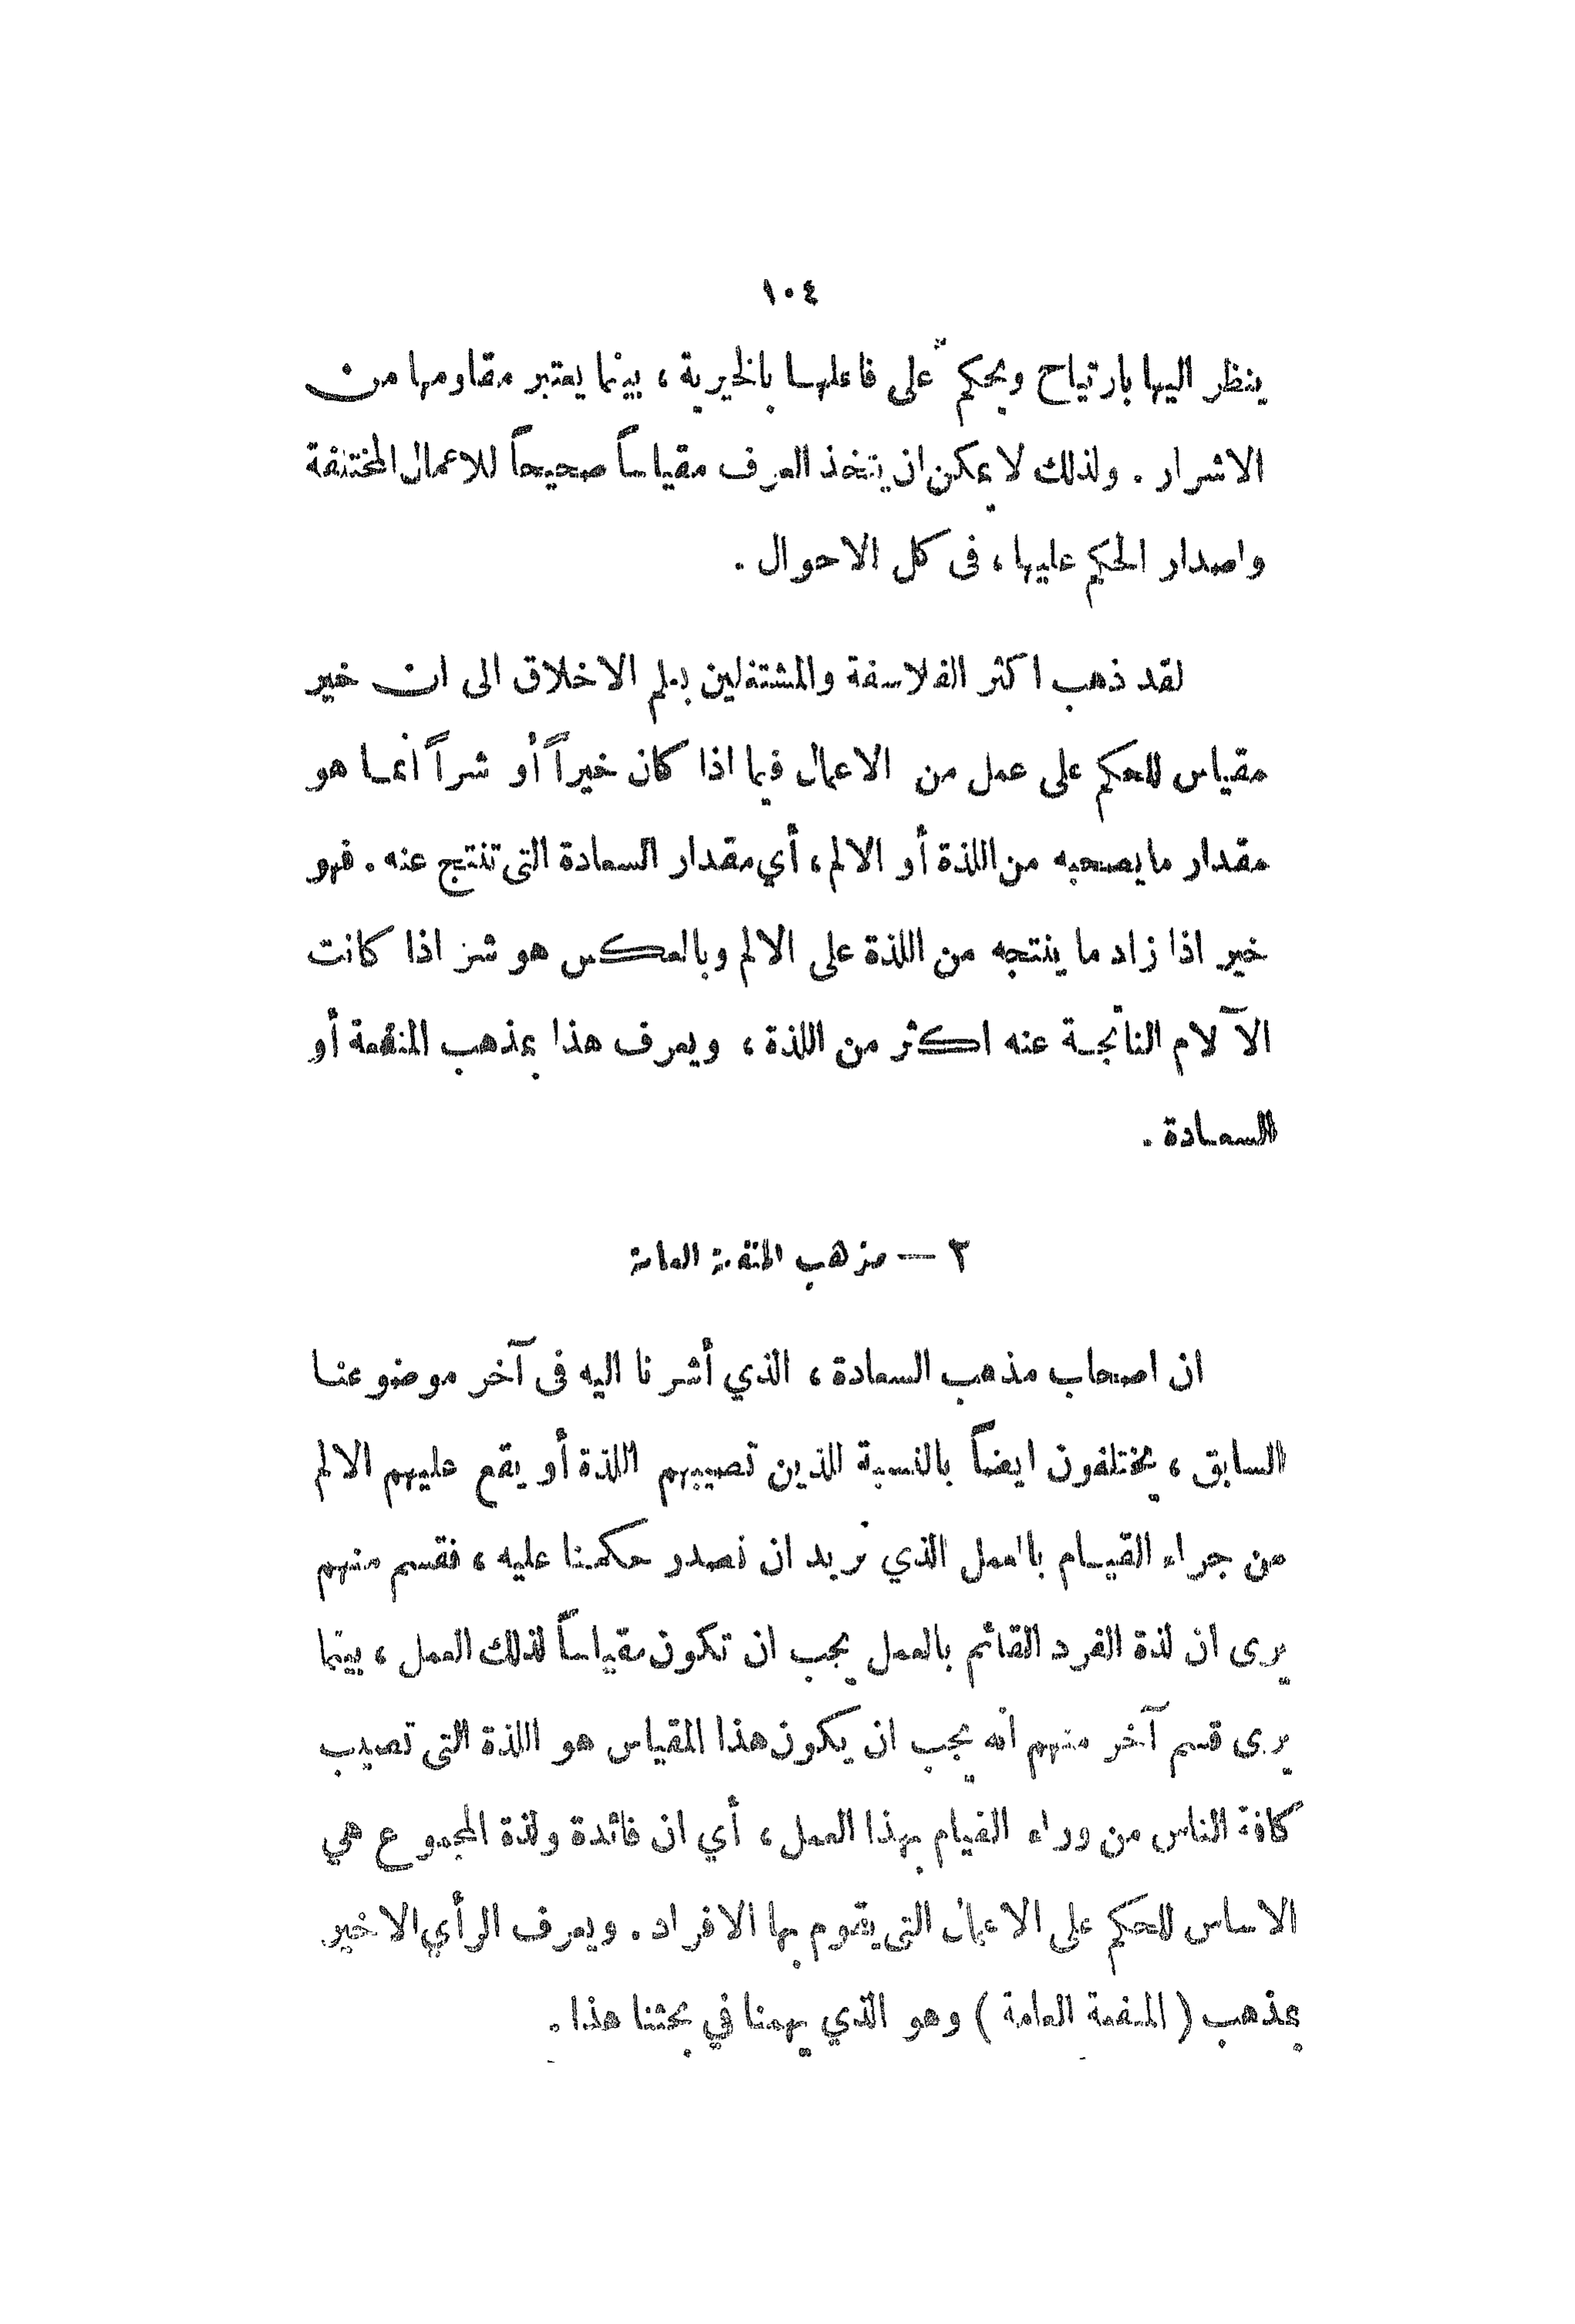 ١٠٤
ينظر اليها بارتياح ويحكم على فاعلها بالخيرية ، بينما يعتبر مقاومها من
الاشرار . ولذلك لا يمكن ان يتخذ العرف مقياساً صحيحاً للاعمال المختلفة
واصدار الحكم عليها ، فى كل الاحوال .
لقد ذهب اكثر الفلاسفة والمشتغلين بعلم الاخلاق الى ان خير
مقياس للحكم على عمل من الاعمال فيما اذا كان خيراً أو شراً أنما هو
مقدار ما يصحبه من اللذة أو الالم ، أي مقدار السعادة التى تنتج عنه . فهو
خير اذا زاد ما ينتجه من اللذة على الالم وبالعكس هو شر اذا كانت
الآلام الناتجة عنه اكثر من اللذة ، ويعرف هذا بمذهب المنفعة أو
السعادة .
٢ — مذهب المنفعة العامة
ان اصحاب مذهب السعادة ، الذي أشرنا اليه فى آخر موضوعنا
السابق ، يختلفون ايضاً بالنسبة للذين تصيبهم اللذة أو يقع عليهم الالم
من جراء القيام بالعمل الذي نريد ان نصدر حكمنا عليه ، فقسم منهم
يرى ان لذة الفرد القائم بالعمل يجب ان تكون مقياساً لذلك العمل ، بينما
يرى قسم آخر منهم أنه يجب ان يكون هذا المقياس هو اللذة التى تصيب
كافة الناس من وراء القيام بهذا العمل ، أي ان فائدة ولذة المجموع هي
الاساس للحكم على الاعمال التى يقوم بها الافراد . ويعرف الرأي الاخير
بمذهب ( المنفعة العامة ) وهو الذي يهمنا في بحثنا هذا .